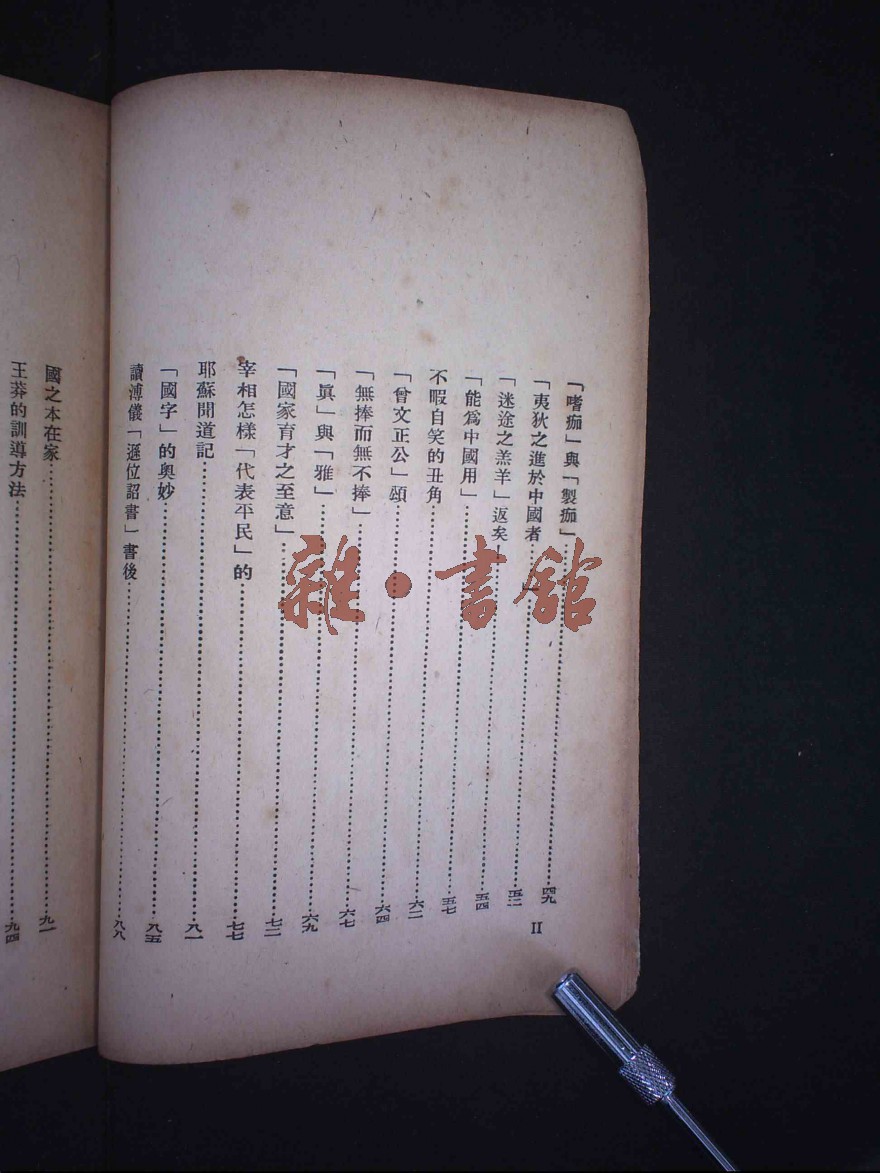 「嗜痂」與「製痂」……四九
「夷狄之進於中國者」……五二
「迷途之羔羊」返矣……五四
「能爲中國用」……五七
不暇自笑的丑角……六二
「曾文正公」頌……六四
「無捧而無不捧」……六七
「眞」與「雅」……六九
「國家育才之至意」……七二
宰相怎樣「代表平民」的……七七
耶蘇聞道記……八一
「國字」的奧妙……八五
讀溥儀「遜位詔書」書後……八八
II
國之本在家……九一
王莽的訓導方法……九四
雜·書館